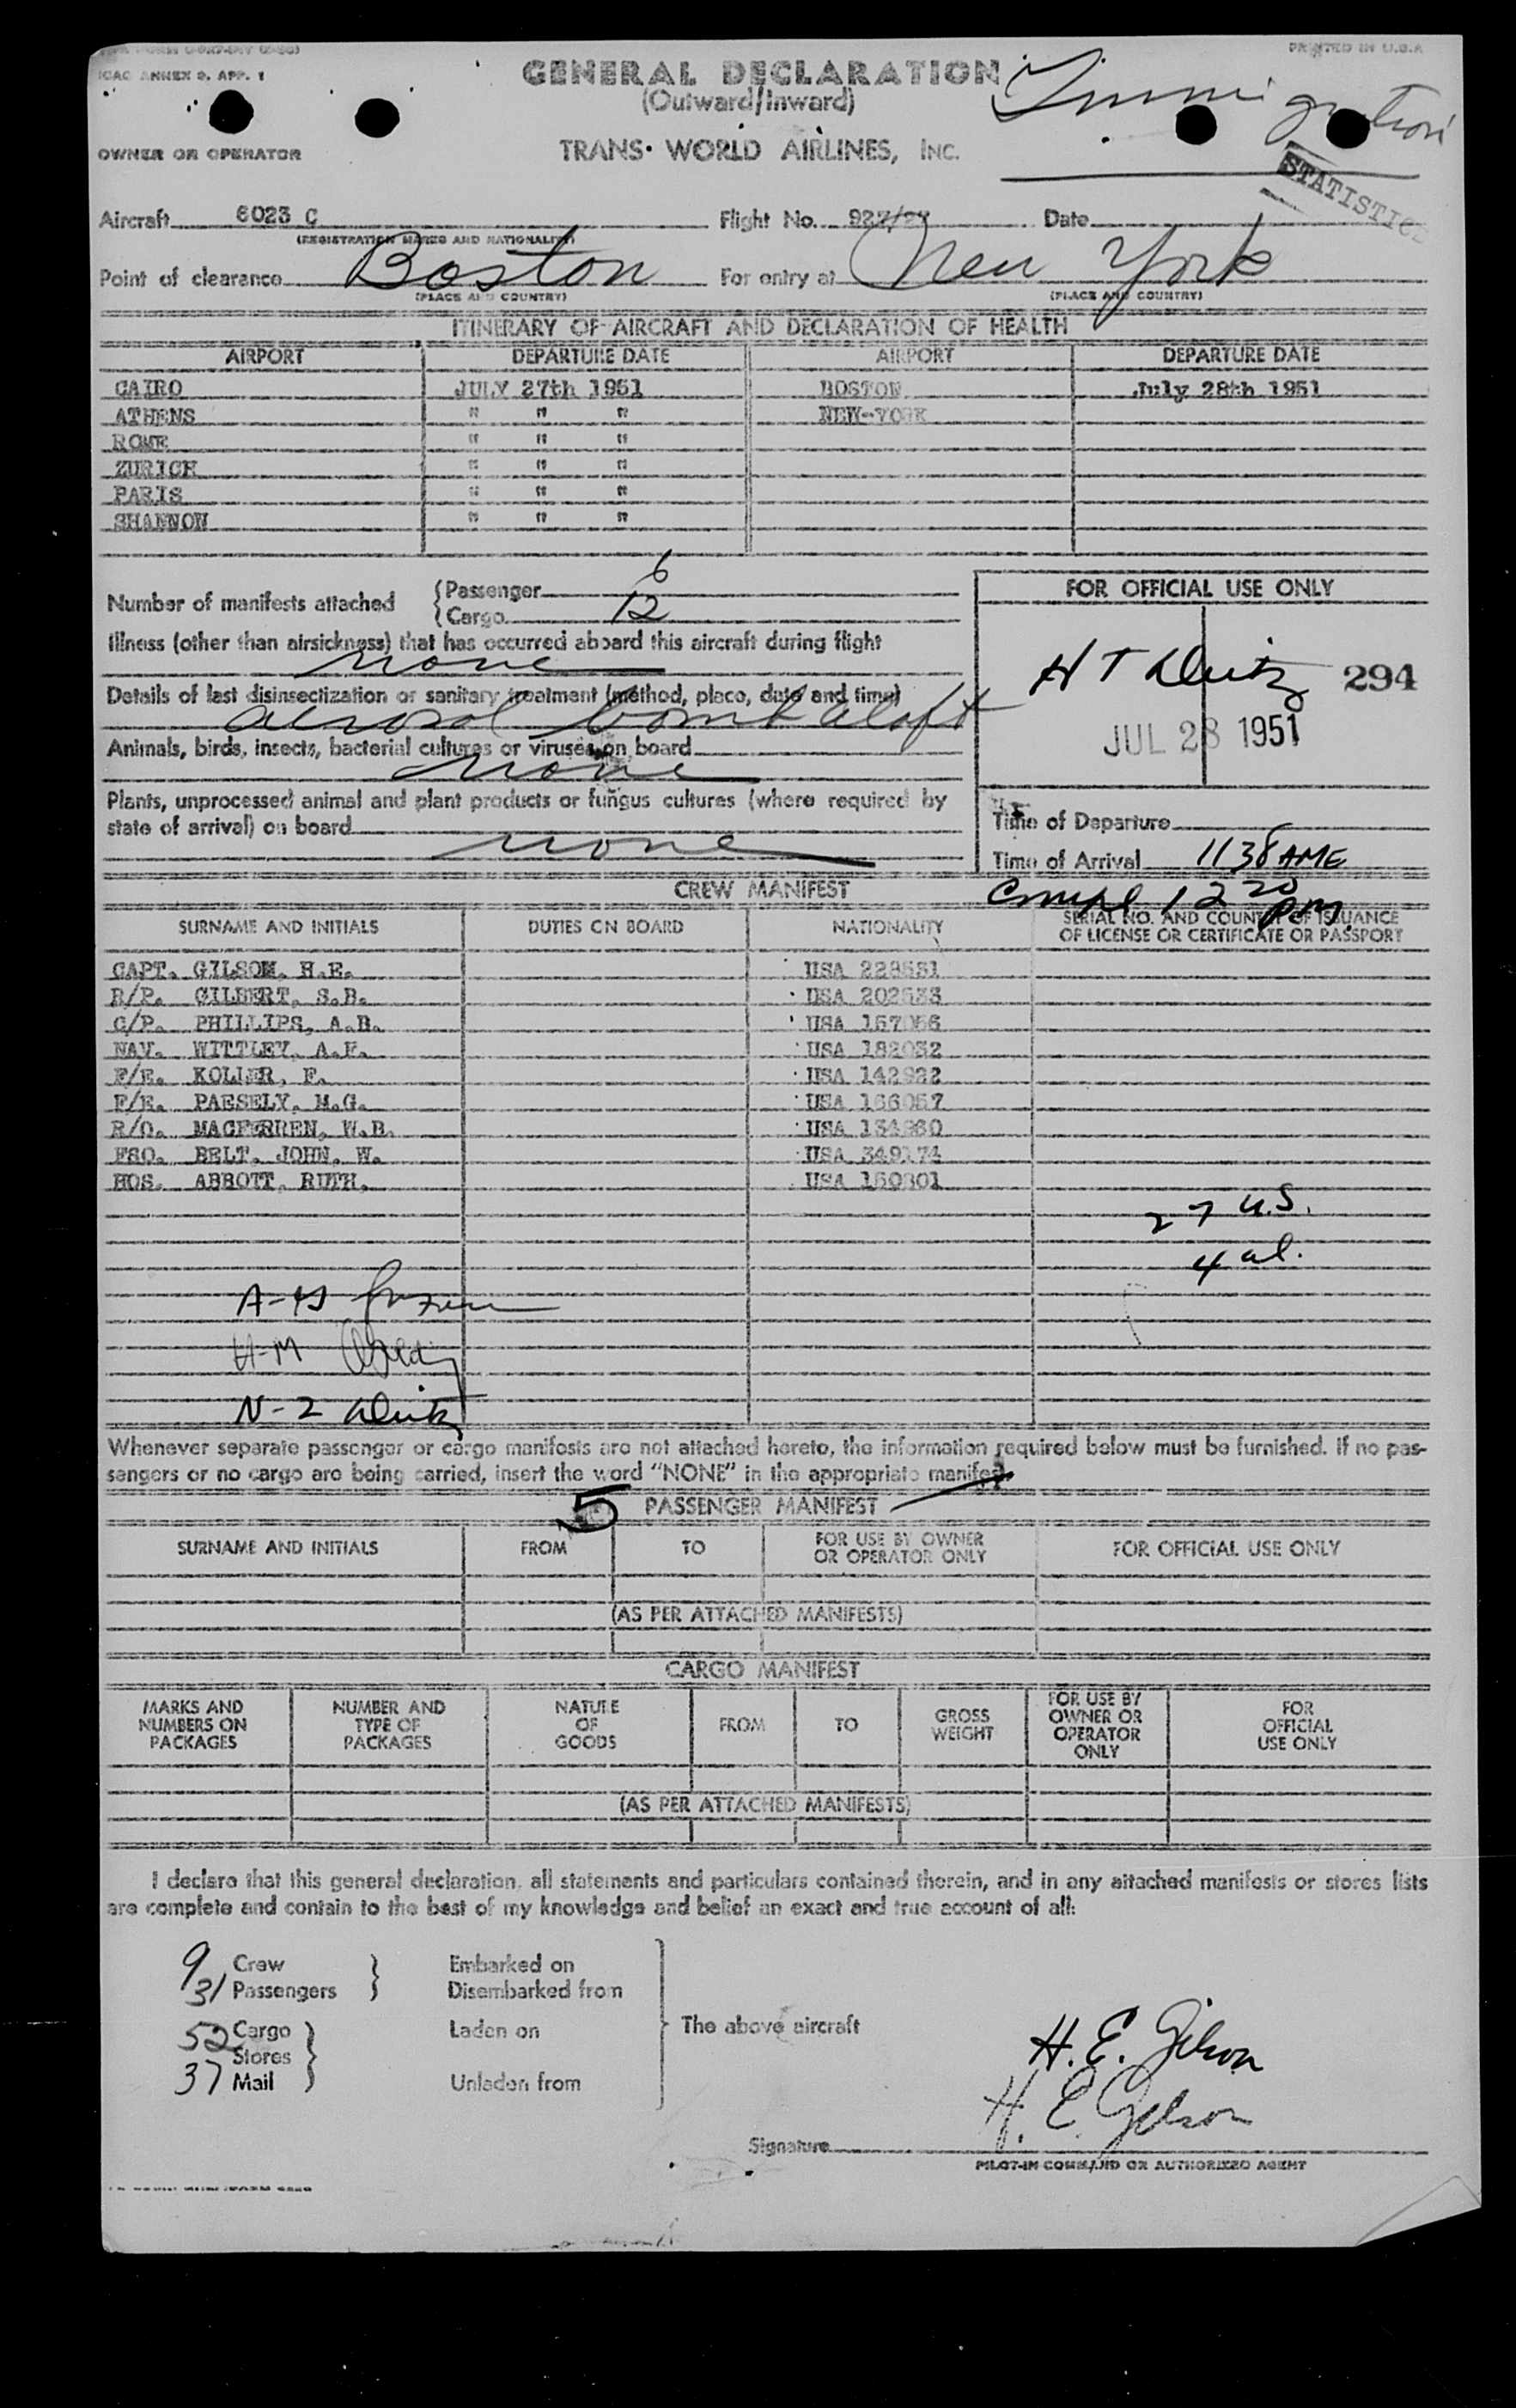 ICAO ANNEX 9, APP. 1
PRINTED IN U.S.A
GENERAL DECLARATION
(Outward/Inward)
Immigration
OWNER OR OPERATOR
TRANS WORLD AIRLINES, INC.
STATISTICS
Aircraft 6023 C Flight No. Date
(REGISTRATION MARKS AND NATIONALITY)
Point of clearance Boston For entry at New York
(PLACE AND COUNTRY) (PLACE AND COUNTRY)
ITINERARY OF AIRCRAFT AND DECLARATION OF HEALTH
AIRPORT DEPARTURE DATE AIRPORT DEPARTURE DATE
CAIRO JULY 27th 1951 BOSTON July 28th 1951
ATHENS " " " NEW-YORK
ROME " " "
ZURICH " " "
PARIS " " "
SHANNON " " "
Number of manifests attached
(Passenger 6
(Cargo 12
Illness (other than airsickness) that has occurred aboard this aircraft during flight
none
Details of last disinsectization or sanitary treatment (method, place, date and time)
aerosol bomb aloft
Animals, birds, insects, bacterial cultures or viruses on board
none
Plants, unprocessed animal and plant products or fungus cultures (where required by
state of arrival) on board
none
FOR OFFICIAL USE ONLY
H T 294
JUL 28 1951
Time of Departure
Time of Arrival 1138 AME
Compl 12 20 PM
CREW MANIFEST
SURNAME AND INITIALS DUTIES ON BOARD NATIONALITY SERIAL NO. AND COUNTRY OF ISSUANCE
OF LICENSE OR CERTIFICATE OR PASSPORT
CAPT. GILSON. H.E. USA 229531
R/P. GILBERT, S.B. USA 202533
C/P. PHILLIPS, A.B. USA 157056
NAV. WITTLEY, A.F. USA 182032
F/E. KOLLER, F. USA 142922
F/E. PARSELY, M.G. USA 166057
R/O. MACFERREN, W.B. USA 134960
FSO. BELT, JOHN, W. USA 349174
HOS. ABBOTT, RUTH. USA 150301
27 U.S.
4 al.
N-2
Whenever separate passenger or cargo manifests are not attached hereto, the information required below must be furnished. If no pas-
sengers or no cargo are being carried, insert the word "NONE" in the appropriate manifest.
5 PASSENGER MANIFEST
SURNAME AND INITIALS FROM TO FOR USE BY OWNER
OR OPERATOR ONLY FOR OFFICIAL USE ONLY
(AS PER ATTACHED MANIFESTS)
CARGO MANIFEST
MARKS AND
NUMBERS ON
PACKAGES
NUMBER AND
TYPE OF
PACKAGES
NATURE
OF
GOODS
FROM
TO
GROSS
WEIGHT
FOR USE BY
OWNER OR
OPERATOR
ONLY
FOR
OFFICIAL
USE ONLY
(AS PER ATTACHED MANIFESTS)
I declare that this general declaration, all statements and particulars contained therein, and in any attached manifests or stores lists
are complete and contain to the best of my knowledge and belief an exact and true account of all:
9 Crew Embarked on
31 Passengers Disembarked from
52 Cargo Laden on
Stores
37 Mail Unladen from
The above aircraft
H. E. Gilson
H. E. Gilson
Signature
PILOT-IN COMMAND OR AUTHORIZED AGENT